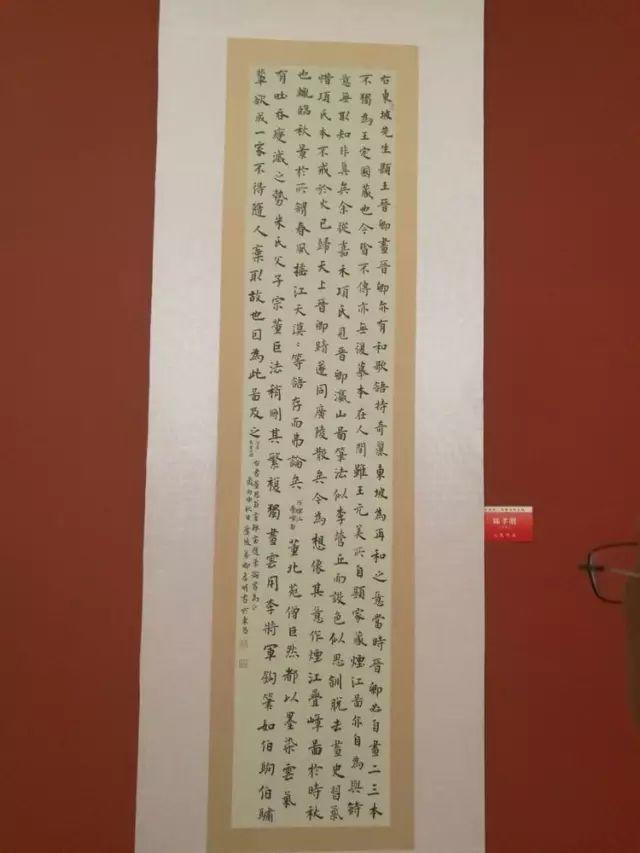 右東坡先生題王晉卿畫晉卿亦有和歌語特奇麗東坡為再和之意當時晉卿必自畫二三本
不獨為王定國藏也今皆不傳亦無復摹本在人間雖王元美所自題家藏煙江圖亦自為與詩
意無取知非真矣余從嘉禾項氏見晉卿瀛山圖筆法似李營丘而設色似思訓脫去畫史習氣
惜項氏本不戒於火已歸天上晉卿蹟遂同廣陵散矣今為想像其意作煙江疊峰圖於時秋
也輒臨秋景於所謂春風搖江天漠:等語存而弗論矣 董北苑僧巨然都以墨染雲氣
有吐吞變滅之勢米氏父子宗董巨法稍刪其繁複獨畫雲用李將軍鉤筆如伯駒伯驌
輩欲成一家不得隨人棄取故也因為此圖及之